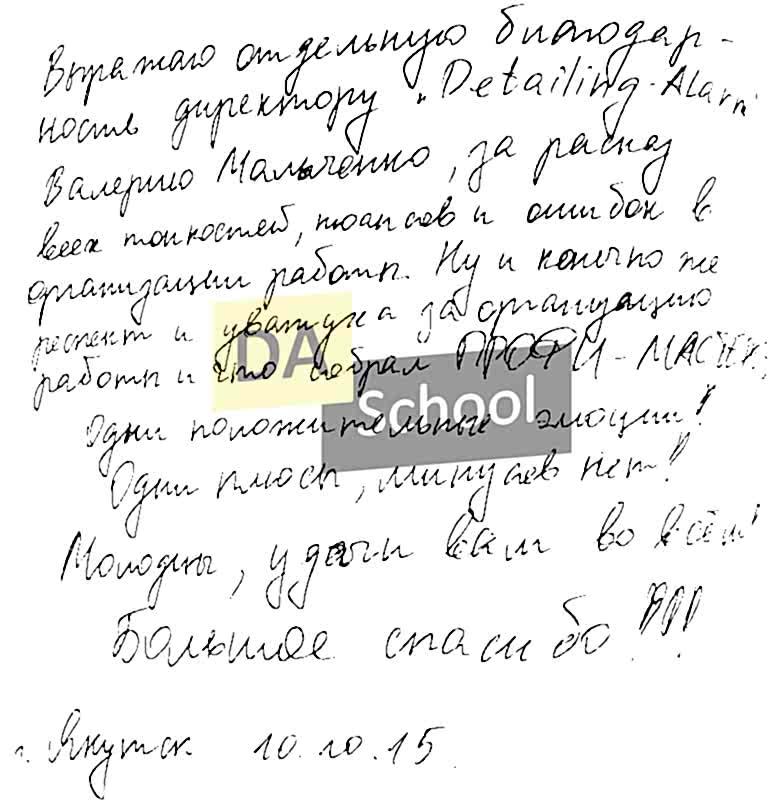 Выражаю отдельную благодар-
ность директору "Detailing-Alarm"
Валерию Мальченко, за расказ
всех тонкостей, нюансов и ошибок в
организации работы. Ну и конечно же
респект и уважуха за организацию
работы и что собрал ПРОФИ-МАСТЕР
DA
School
Одни положительные эмоции!
Одни плюсы, минусов нет!
Молодцы, удачи вам во всём!
Большое спасибо!!!
г. Якутск 10.10.15